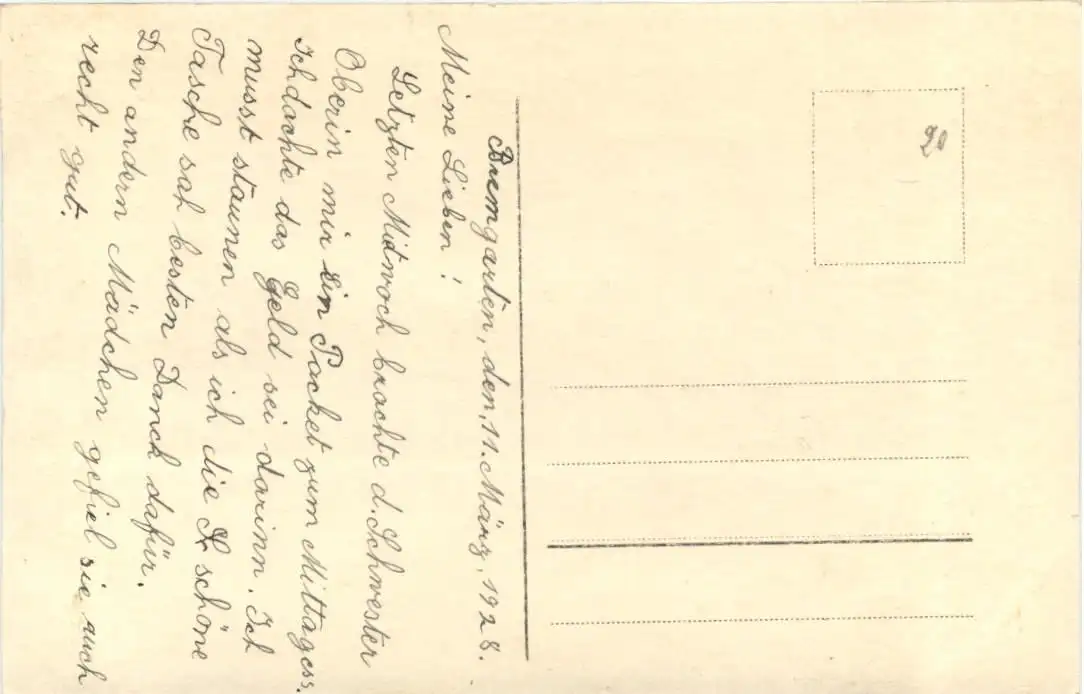 Bremgarten, den, 11. März, 1928.
Meine Lieben!
Letzten Mitwoch brachte d. Schwester
Oberin mir ein Packet zum Mittagess.
Ich dachte das Geld sei darinn. Ich
musst staunen als ich die schöne
Tasche sah besten Danck dafür.
Den andern Mädchen gefiel sie auch
recht gut.
20